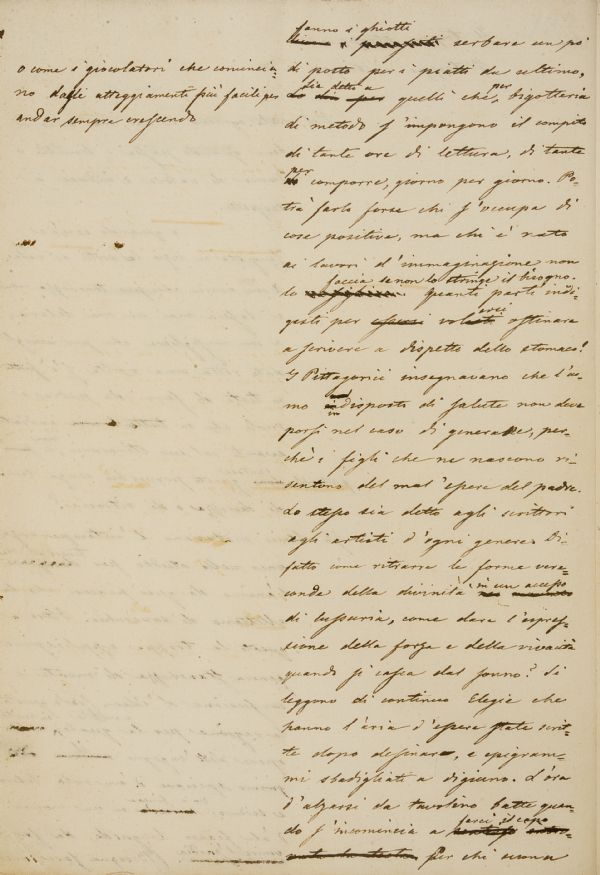 o come i giocolatori che comincia-
no dagli atteggiamenti più facili per
andar sempre crescendo
fanno i ghiotti
serbare un pò
di posto per i piatti da ultimo.
sia detto a per
Lo quelli che, bigotteria
di metodo s'impongono il compito
di tante ore di lettura, di tante
per
comporre, giorno per giorno. Po-
trà farlo forse chi s'occupa di
cose positive, ma chi è nato
ai lavori d'immaginazione non
faccia se non lo stringe il bisogno.
lo Quanti parti indi-
erci
gesti per volersi ostinare
a scrivere a dispetto dello stomaco!
I Pittagorici insegnavano che l'uo-
mo indisposto di salute non deve
porsi nel caso di generare, per-
chè i figli che ne nascono ri-
sentono del mal'essere del padre.
Lo stesso sia detto agli scrittori
agli artisti d'ogni genere. Di-
fatto come ritrarre le forme vere-
conde della divinità in un accesso
di lussuria, come dare l'espres-
sione della forza e della vivacità
quando si casca dal sonno? Si
leggono di continuo Elegie che
hanno l'aria d'essere state scrit-
te dopo desinare, e epigram-
mi sbadigliati a digiuno. L'ora
d'alzarsi da tavolino batte quan-
farci il capo
do s'incomincia a
per chi suona